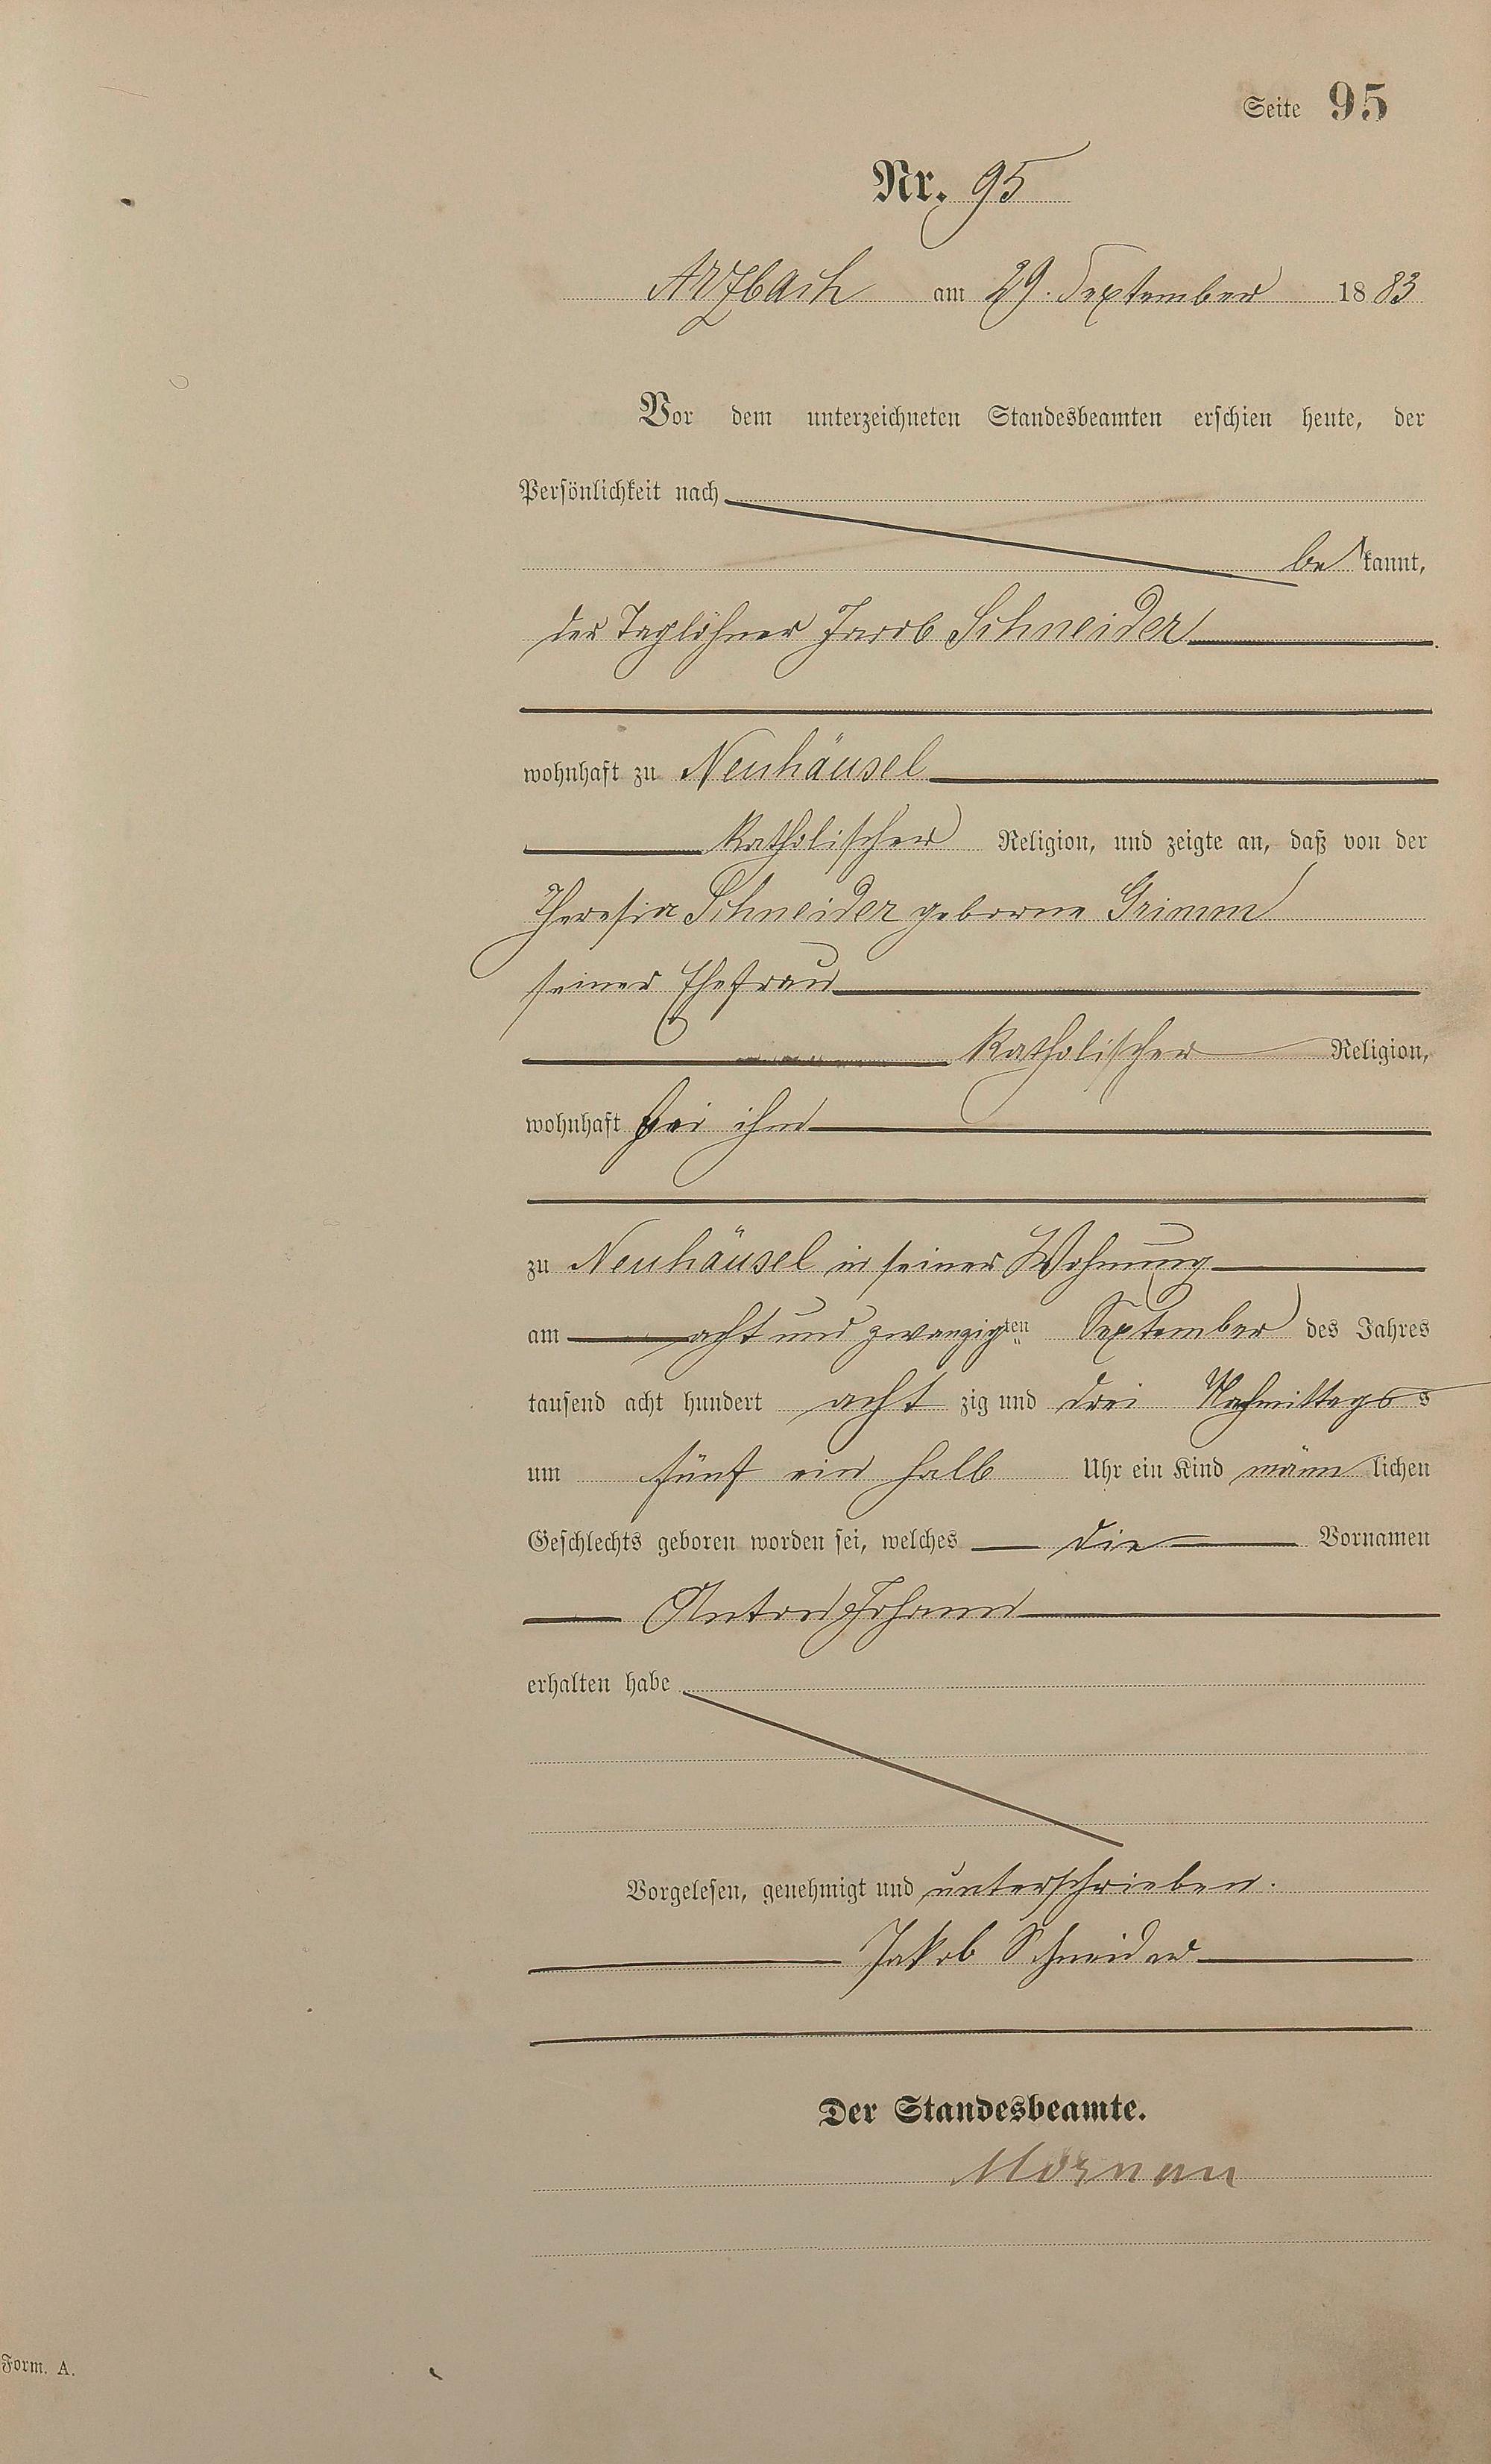 Seite 95
Nr. 95
Arzbach am 29. September 1883
Vor dem unterzeichneten Standesbeamten erschien heute, der
Persönlichkeit nach
bekannt,
der Taglöhner Jacob Schneider
wohnhaft zu Neuhäusel
katholischer Religion, und zeigte an, daß von der
Theresia Schneider geborene Grimm
seiner Ehefrau
katholischer Religion,
wohnhaft bei ihm
zu Neuhäusel in seiner Wohnung
am acht und zwanzigten September des Jahres
tausend acht hundert achtzig und drei Nachmittags
um fünf ein halb Uhr ein Kind männlichen
Geschlechts geboren worden sei, welches die Vornamen
Anton Johann
erhalten habe
Vorgelesen, genehmigt und unterschrieben.
Jakob Schneider
Der Standesbeamte.
Form. A.